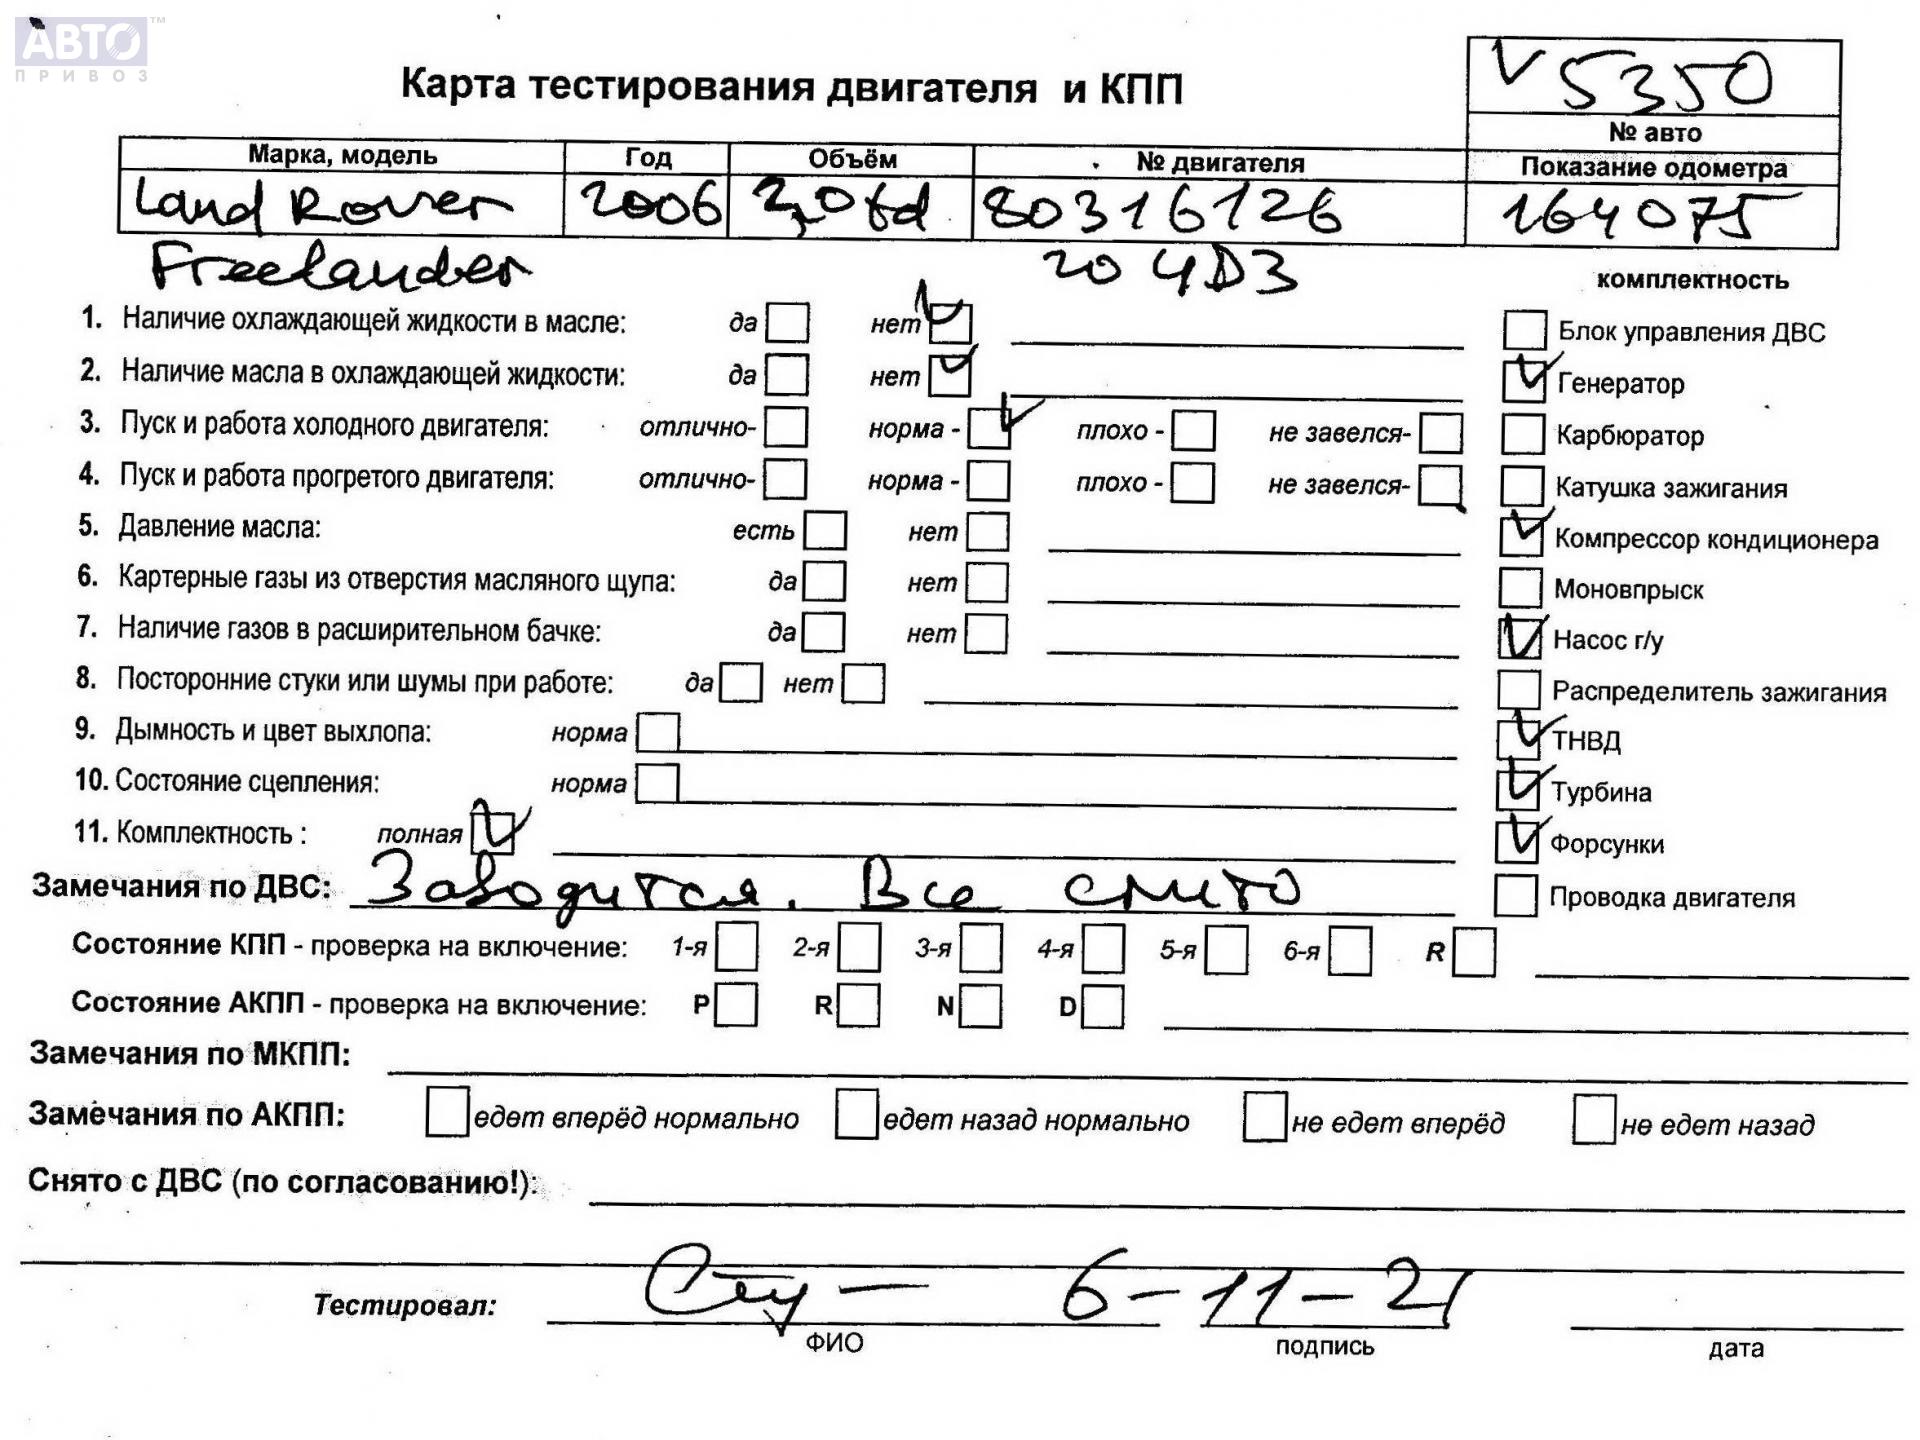 АВТО™
ПРИВОЗ
Карта тестирования двигателя и КПП
V 5350
№ авто
Марка, модель Год Объём № двигателя Показание одометра
Land Rover 2006 2,0 td 80316126 164075
Freelander 204D3
комплектность
1. Наличие охлаждающей жидкости в масле: да нет
Блок управления ДВС
2. Наличие масла в охлаждающей жидкости: да нет
Генератор
3. Пуск и работа холодного двигателя: отлично- норма - плохо - не завелся-
Карбюратор
4. Пуск и работа прогретого двигателя: отлично- норма - плохо - не завелся-
Катушка зажигания
5. Давление масла: есть нет
Компрессор кондиционера
6. Картерные газы из отверстия масляного щупа: да нет
Моновпрыск
7. Наличие газов в расширительном бачке: да нет
Насос г/у
8. Посторонние стуки или шумы при работе: да нет
Распределитель зажигания
9. Дымность и цвет выхлопа: норма
ТНВД
10. Состояние сцепления: норма
Турбина
11. Комплектность : полная
Форсунки
Замечания по ДВС: Заводится. Все слито
Проводка двигателя
Состояние КПП - проверка на включение: 1-я 2-я 3-я 4-я 5-я 6-я R
Состояние АКПП - проверка на включение: P R N D
Замечания по МКПП:
Замечания по АКПП: едет вперёд нормально едет назад нормально не едет вперёд не едет назад
Снято с ДВС (по согласованию!):
Тестировал: 6-11-21
ФИО подпись дата